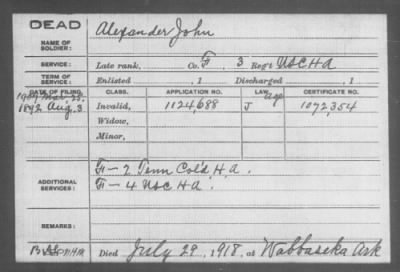 DEAD
NAME OF SOLDIER:
Alexander John
SERVICE:
Late rank, Co. F, 3 Reg't USCHA
TERM OF SERVICE:
Enlisted , 1 Discharged , 1
DATE OF FILING. CLASS. APPLICATION NO. LAW. CERTIFICATE NO.
1907 Mar 25. Age
1892 Aug. 3 Invalid, 1124,688 J 1072,354
Widow,
Minor,
ADDITIONAL SERVICES:
F - 2 Tenn Col'd H.A.
F - 4 USCHA
REMARKS:
Died July 29, 1918, at Wabbaseka Ark